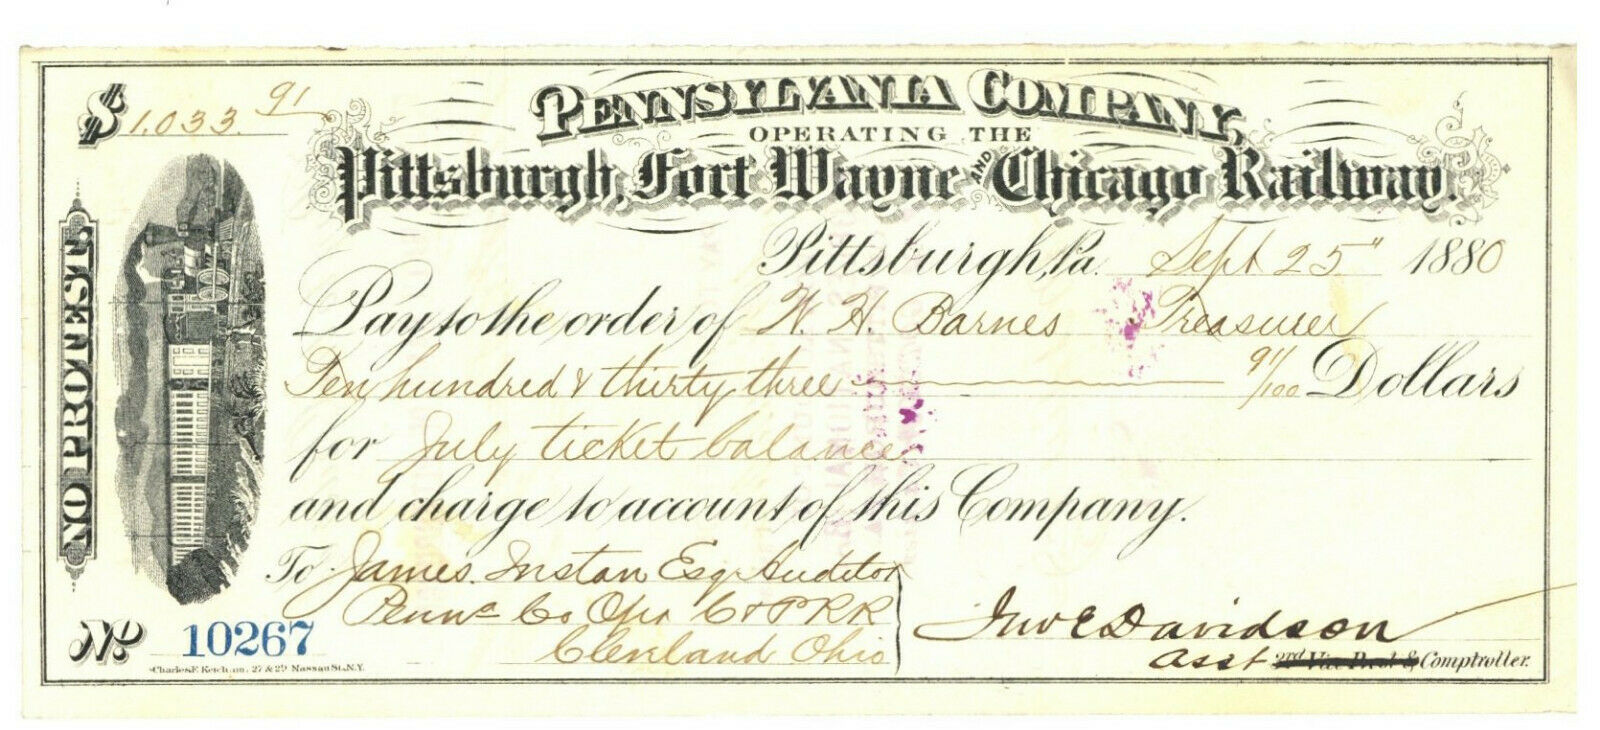 $ 1.033.91
PENNSYLVANIA COMPANY,
OPERATING THE
Pittsburgh, Fort Wayne AND Chicago Railway.
Pittsburgh, Pa. Sept 25" 1880
Pay to the order of W. H. Barnes Treasurer
Ten hundred & thirty three 91/100 Dollars
for July ticket balance
and charge to account of this Company.
To James Instan Esq Auditor
Penna Co Opr C & P R R
Cleveland Ohio
Jno E Davidson
Asst 2rd Vice Prest & Comptroller.
NO PROTEST.
No 10267
Charles F. Ketcham, 27 & 29 Nassau St., N.Y.